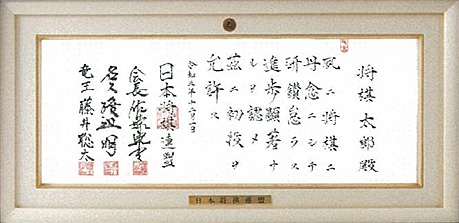 将棋太郎殿
夙ニ将棋ニ
丹念ニシテ
研鑽怠ラス
進歩顕著ナ
ルヲ認メ
茲ニ初段ヲ
允許ス
令和
日本将棋連盟
会長 佐藤康光
名人 渡辺明
竜王 藤井聡太
日本将棋連盟